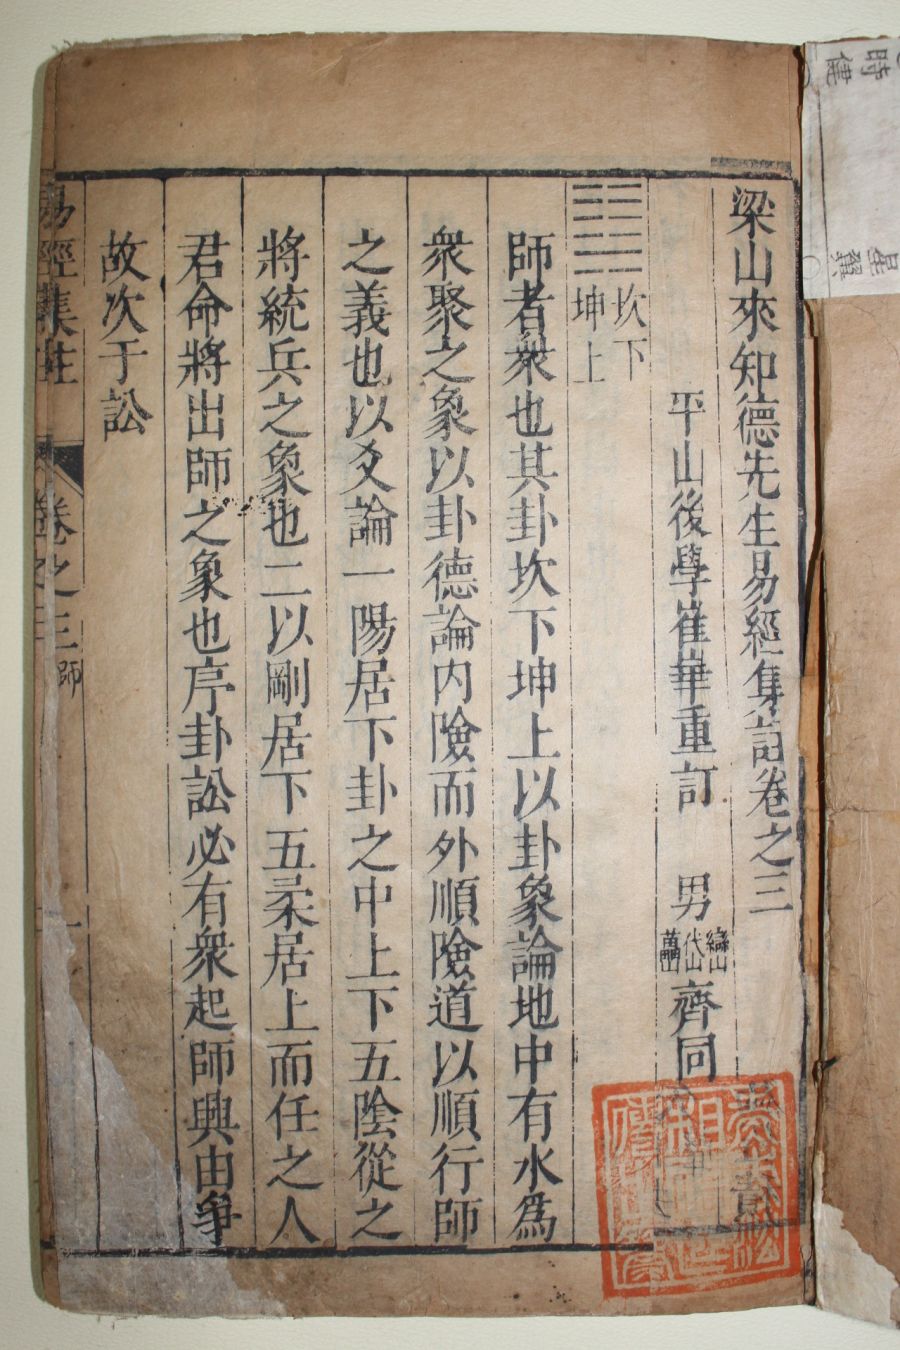 梁山來知德先生易經集註卷之三
平山後學崔華重訂 男 巒 岱 齊同
坎下
坤上
師者衆也其卦坎下坤上以卦象論地中有水爲
衆聚之象以卦德論內險而外順險道以順行師
之義也以爻論一陽居下卦之中上下五陰從之
將統兵之象也二以剛居下五柔居上而任之人
君命將出師之象也序卦訟必有衆起師興由爭
故次于訟
易經集註 卷之三 師 一